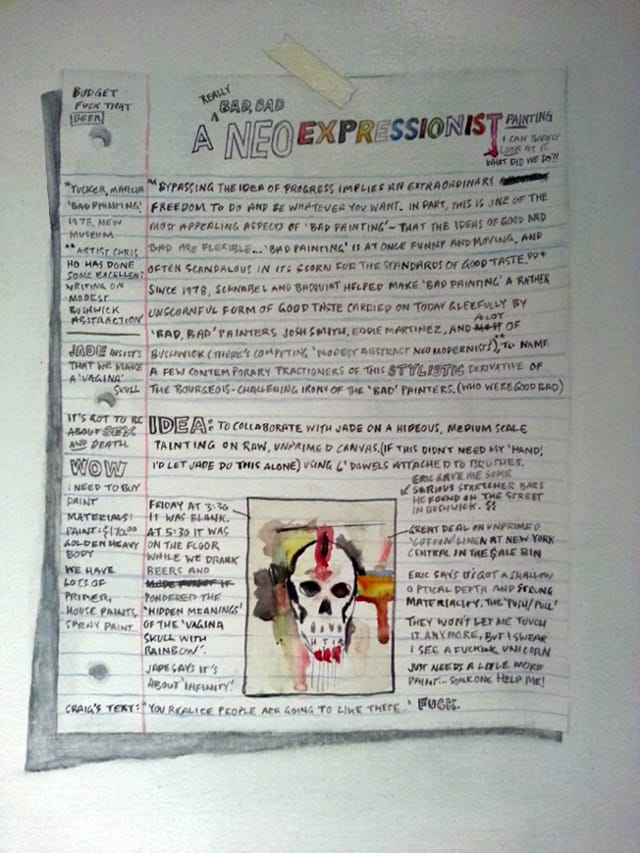 BUDGET
FUCK THAT
BEER
REALLY
BAD, BAD
A NEOEXPRESSIONIST PAINTING
I CAN BARELY
LOOK AT IT.
WHAT DID WE DO?!
*TUCKER, MARCIA
'BAD PAINTING'
1978, NEW
MUSEUM
**ARTIST CHRIS
HO HAS DONE
SOME EXCELLENT
WRITING ON
MODEST
BUSHWICK
ABSTRACTION
JADE INSISTS
THAT WE MAKE
A 'VAGINA'
SKULL
IT'S GOT TO BE
ABOUT SEX
AND DEATH
WOW
I NEED TO BUY
PAINT
MATERIALS:
PAINT: $170.00
GOLDEN HEAVY
BODY
WE HAVE
LOTS OF
PRIMER,
HOUSE PAINTS,
SPRAY PAINT...
"BYPASSING THE IDEA OF PROGRESS IMPLIES AN EXTRAORDINARY
FREEDOM TO DO AND BE WHATEVER YOU WANT. IN PART, THIS IS ONE OF THE
MOST APPEALING ASPECTS OF 'BAD PAINTING' - THAT THE IDEAS OF GOOD AND
BAD ARE FLEXIBLE... 'BAD PAINTING' IS AT ONCE FUNNY AND MOVING, AND
OFTEN SCANDALOUS IN ITS SCORN FOR THE STANDARDS OF GOOD TASTE."*
SINCE 1978, SCHNABEL AND BASQUIAT HELPED MAKE 'BAD PAINTING' A RATHER
UNSCORNFUL FORM OF GOOD TASTE CARRIED ON TODAY GLEEFULLY BY
'BAD, BAD' PAINTERS JOSH SMITH, EDDIE MARTINEZ, AND A LOT OF
BUSHWICK (THERE'S COMPETING 'MODEST ABSTRACT NEO MODERNISTS'),** TO NAME
A FEW CONTEMPORARY PRACTIONERS OF THIS STYLISTIC DERIVATIVE OF
THE BOURGEOIS-CHALLENGING IRONY OF THE 'BAD' PAINTERS. (WHO WERE GOOD BAD)
IDEA: TO COLLABORATE WITH JADE ON A HIDEOUS, MEDIUM SCALE
PAINTING ON RAW, UNPRIMED CANVAS. (IF THIS DIDN'T NEED MY 'HAND,'
I'D LET JADE DO THIS ALONE) USING 6' DOWELS ATTACHED TO BRUSHES.
FRIDAY AT 3:30
IT WAS BLANK.
AT 5:30 IT WAS
ON THE FLOOR
WHILE WE DRANK
BEERS AND
PONDERED THE
'HIDDEN MEANINGS'
OF THE 'VAGINA
SKULL WITH
RAINBOW'.
JADE SAYS IT'S
ABOUT 'INFINITY.'
ERIC GAVE ME SOME
SERIOUS STRETCHER BARS
HE FOUND ON THE STREET
IN BUSHWICK. $$
GREAT DEAL ON UNPRIMED
'COTTON' LINEN AT NEW YORK
CENTRAL IN THE SALE BIN
ERIC SAYS IT'S GOT A SHALLOW
OPTICAL DEPTH AND STRONG
MATERIALITY. THE 'PUSH/PULL'
THEY WON'T LET ME TOUCH
IT ANYMORE, BUT I SWEAR
I SEE A FUCKING UNICORN
JUST NEEDS A LITTLE MORE
PAINT - SOMEONE HELP ME!
CRAIG'S TEXT: 'YOU REALIZE PEOPLE ARE GOING TO LIKE THESE.' FUCK.